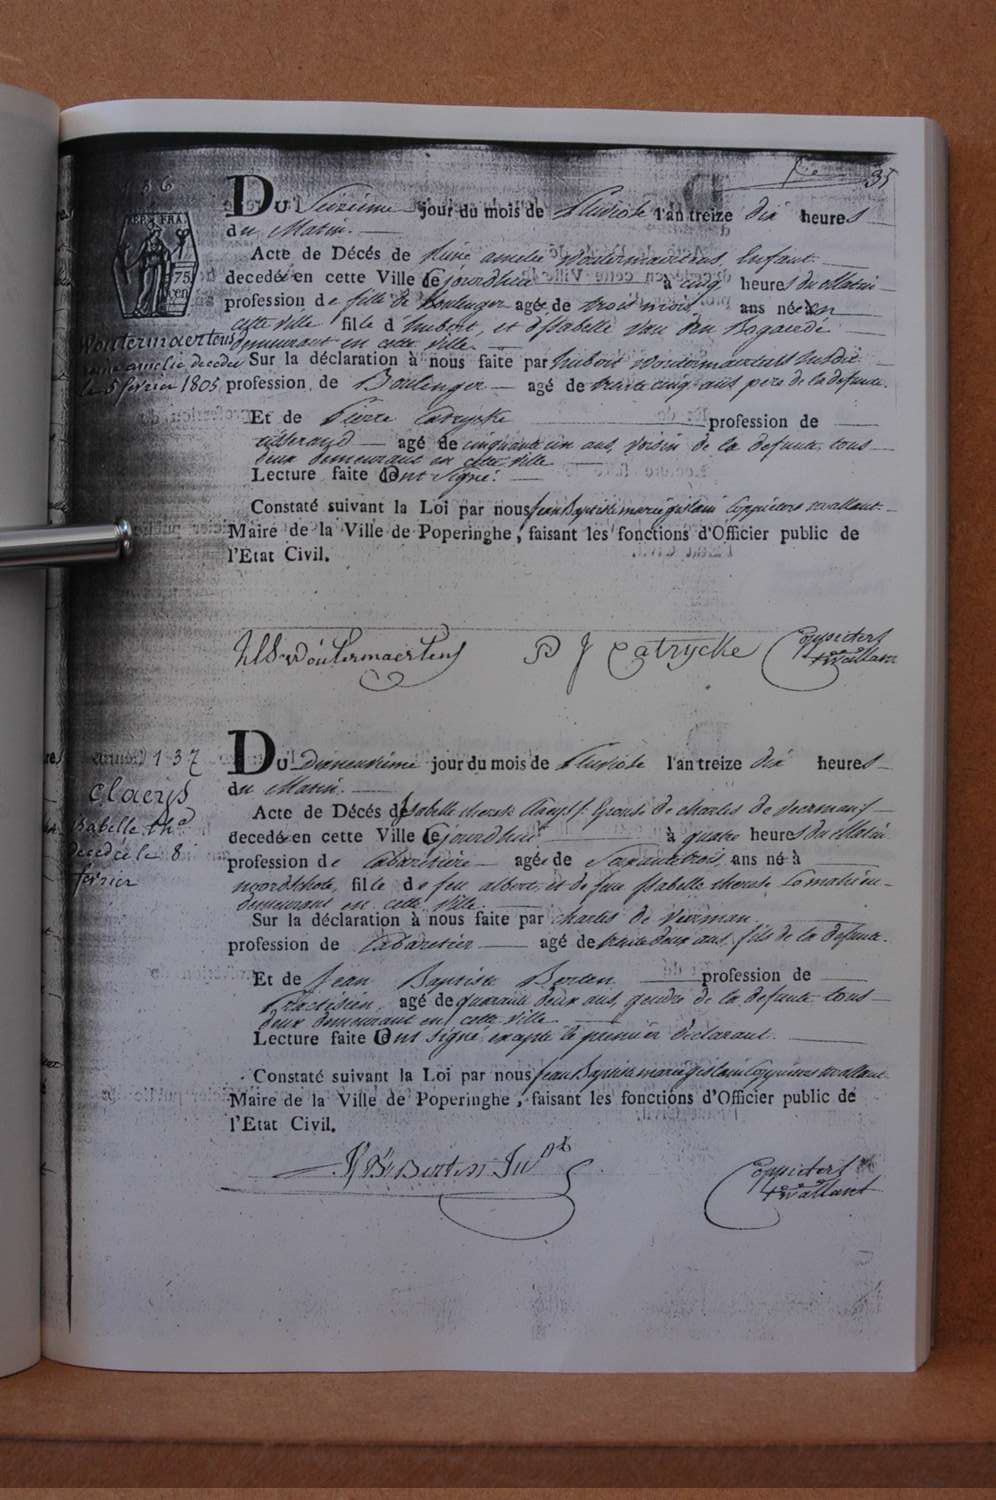 35
136
REP. FRA.
75
cen
DU Seizieme jour du mois de Pluviose l'an treize dix heures
du Matin.
Acte de Décés de amelie Woutermaertens, Enfant
decedée en cette Ville Cejourdhui à cinq heures du Matin
profession de fille de Boulenger agée de trois mois ans née en
cette ville fille d'hubert, et d'Isabelle Van den Bogaerde
demeurant en cette ville
Woutermaertens
amelie decedée
le 5 février 1805
Sur la déclaration à nous faite par hubert Woutermaertens susdit
profession de Boulenger agé de trente cinq ans pere de la defunte.
Et de Pierre Catrycke profession de
tisserand agé de cinquante un ans, voisin de la defunte, tous
deux demeurant en cette ville
Lecture faite ont signé.
Constaté suivant la Loi par nous jean Baptiste marie gislain Coppieters
Maire de la Ville de Poperinghe, faisant les fonctions d'Officier public de
l'Etat Civil.
Woutermaertens P J Catrycke Coppieters
137
Claeys
Isabelle Thse
decedée le 8
février
DU Dixneuvieme jour du mois de Pluviose l'an treize dix heures
du Matin.
Acte de Décés d'Isabelle therese Claeys Epouse de charles de
decedée en cette Ville Cejourdhui à quatre heures du Matin
profession de Cabaretiere agée de Soixante trois ans né à
noordschote, fille de feu albert, et de feue Isabelle therese
demeurant en cette ville.
Sur la déclaration à nous faite par charles de
profession de Cabaretier agé de trente deux ans, fils de la defunte.
Et de Jean Baptiste Berten profession de
Practicien, agé de quarante deux ans, gendre de la defunte tous
deux demeurant en cette ville
Lecture faite ont signé excepté le premier déclarant.
Constaté suivant la Loi par nous jean Baptiste marie gislain Coppieters
Maire de la Ville de Poperinghe, faisant les fonctions d'Officier public de
l'Etat Civil.
J. Bte Berten Coppieters